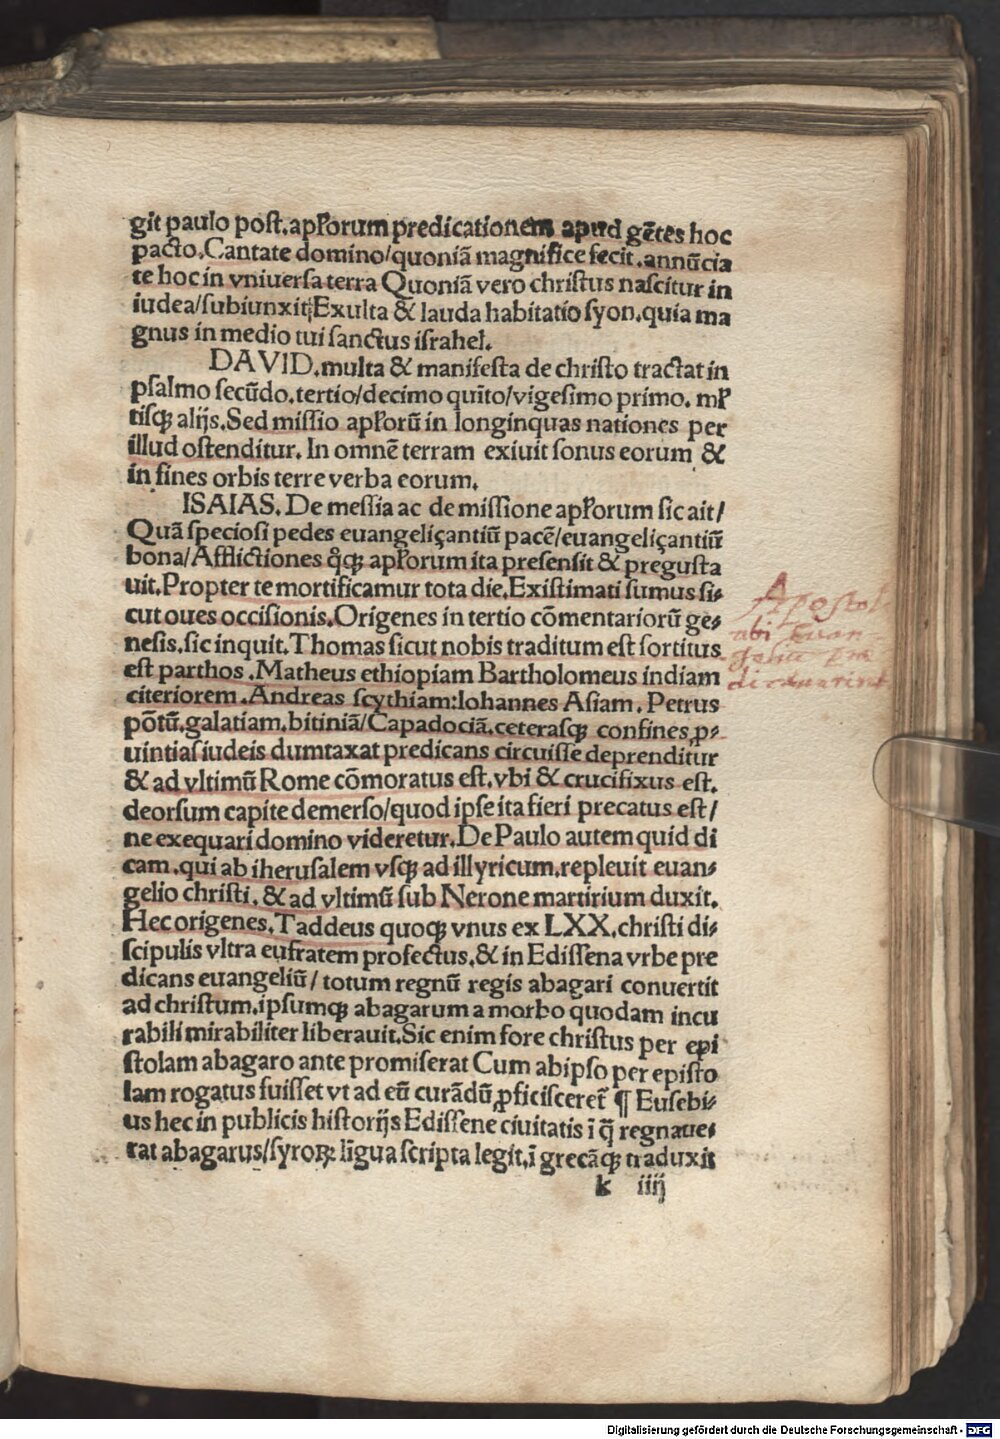 git paulo post.apl'orum predicationem apud gẽtes hoc
pacto.Cantate domino/quoniã magnifice fecit.annũcia
te hoc in vniuersa terra Quoniã vero christus nascitur in
iudea/subiunxit;Exulta & lauda habitatio syon.quia ma
gnus in medio tui sanctus israhel.
DAVID.multa & manifesta de christo tractat in
psalmo secũdo.tertio/decimo quĩto/vigesimo primo. ml'
tisqꝫ alijs.Sed missio apl'orũ in longinquas nationes per
illud ostenditur. In omnẽ terram exiuit sonus eorum &
in fines orbis terre verba eorum.
ISAIAS. De messia ac de missione apl'orum sic ait/
Quã speciosi pedes euangeliçantiũ pacẽ/euangeliçantiũ
bona/Afflictiones q̊qꝫ apl'orum ita presensit & pregusta
uit.Propter te mortificamur tota die.Existimati sumus si⸗
cut oues occisionis.Origenes in tertio cõmentariorũ ge⸗
nesis.sic inquit.Thomas sicut nobis traditum est sortitus
est parthos.Matheus ethiopiam Bartholomeus indiam
citeriorem.Andreas scythiam:Iohannes Asiam. Petrus
põtũ.galatiam.bitiniã/Capadociã.ceterasqꝫ confines ꝓ⸗
uintias iudeis dumtaxat predicans circuisse deprenditur
& ad vltimũ Rome cõmoratus est.vbi & crucifixus est.
deorsum capite demerso/quod ipse ita fieri precatus est/
ne exequari domino videretur.De Paulo autem quid di
cam.qui ab iherusalem vsqꝫ ad illyricum.repleuit euan⸗
gelio christi.& ad vltimũ sub Nerone martirium duxit.
Hec origenes.Taddeus quoqꝫ vnus ex LXX.christi di⸗
scipulis vltra eufratem profectus.& in Edissena vrbe pre
dicans euangeliũ/ totum regnũ regis abagari conuertit
ad christum.ipsumqꝫ abagarum a morbo quodam incu
rabili mirabiliter liberauit.Sic enim fore christus per epi
stolam abagaro ante promiserat Cum ab ipso per episto
lam rogatus fuisset vt ad eũ curãdũ ꝓficisceret᷑ ¶ Eusebi⸗
us hec in publicis historijs Edissene ciuitatis ĩ q̃ regnaue⸗
rat abagarus/syroꝝ lĩgua scripta legit.ĩ grecãqꝫ traduxit
k iiij
Apostoli
vbi Euan-
gelium
Digitalisierung gefördert durch die Deutsche Forschungsgemeinschaft - DFG